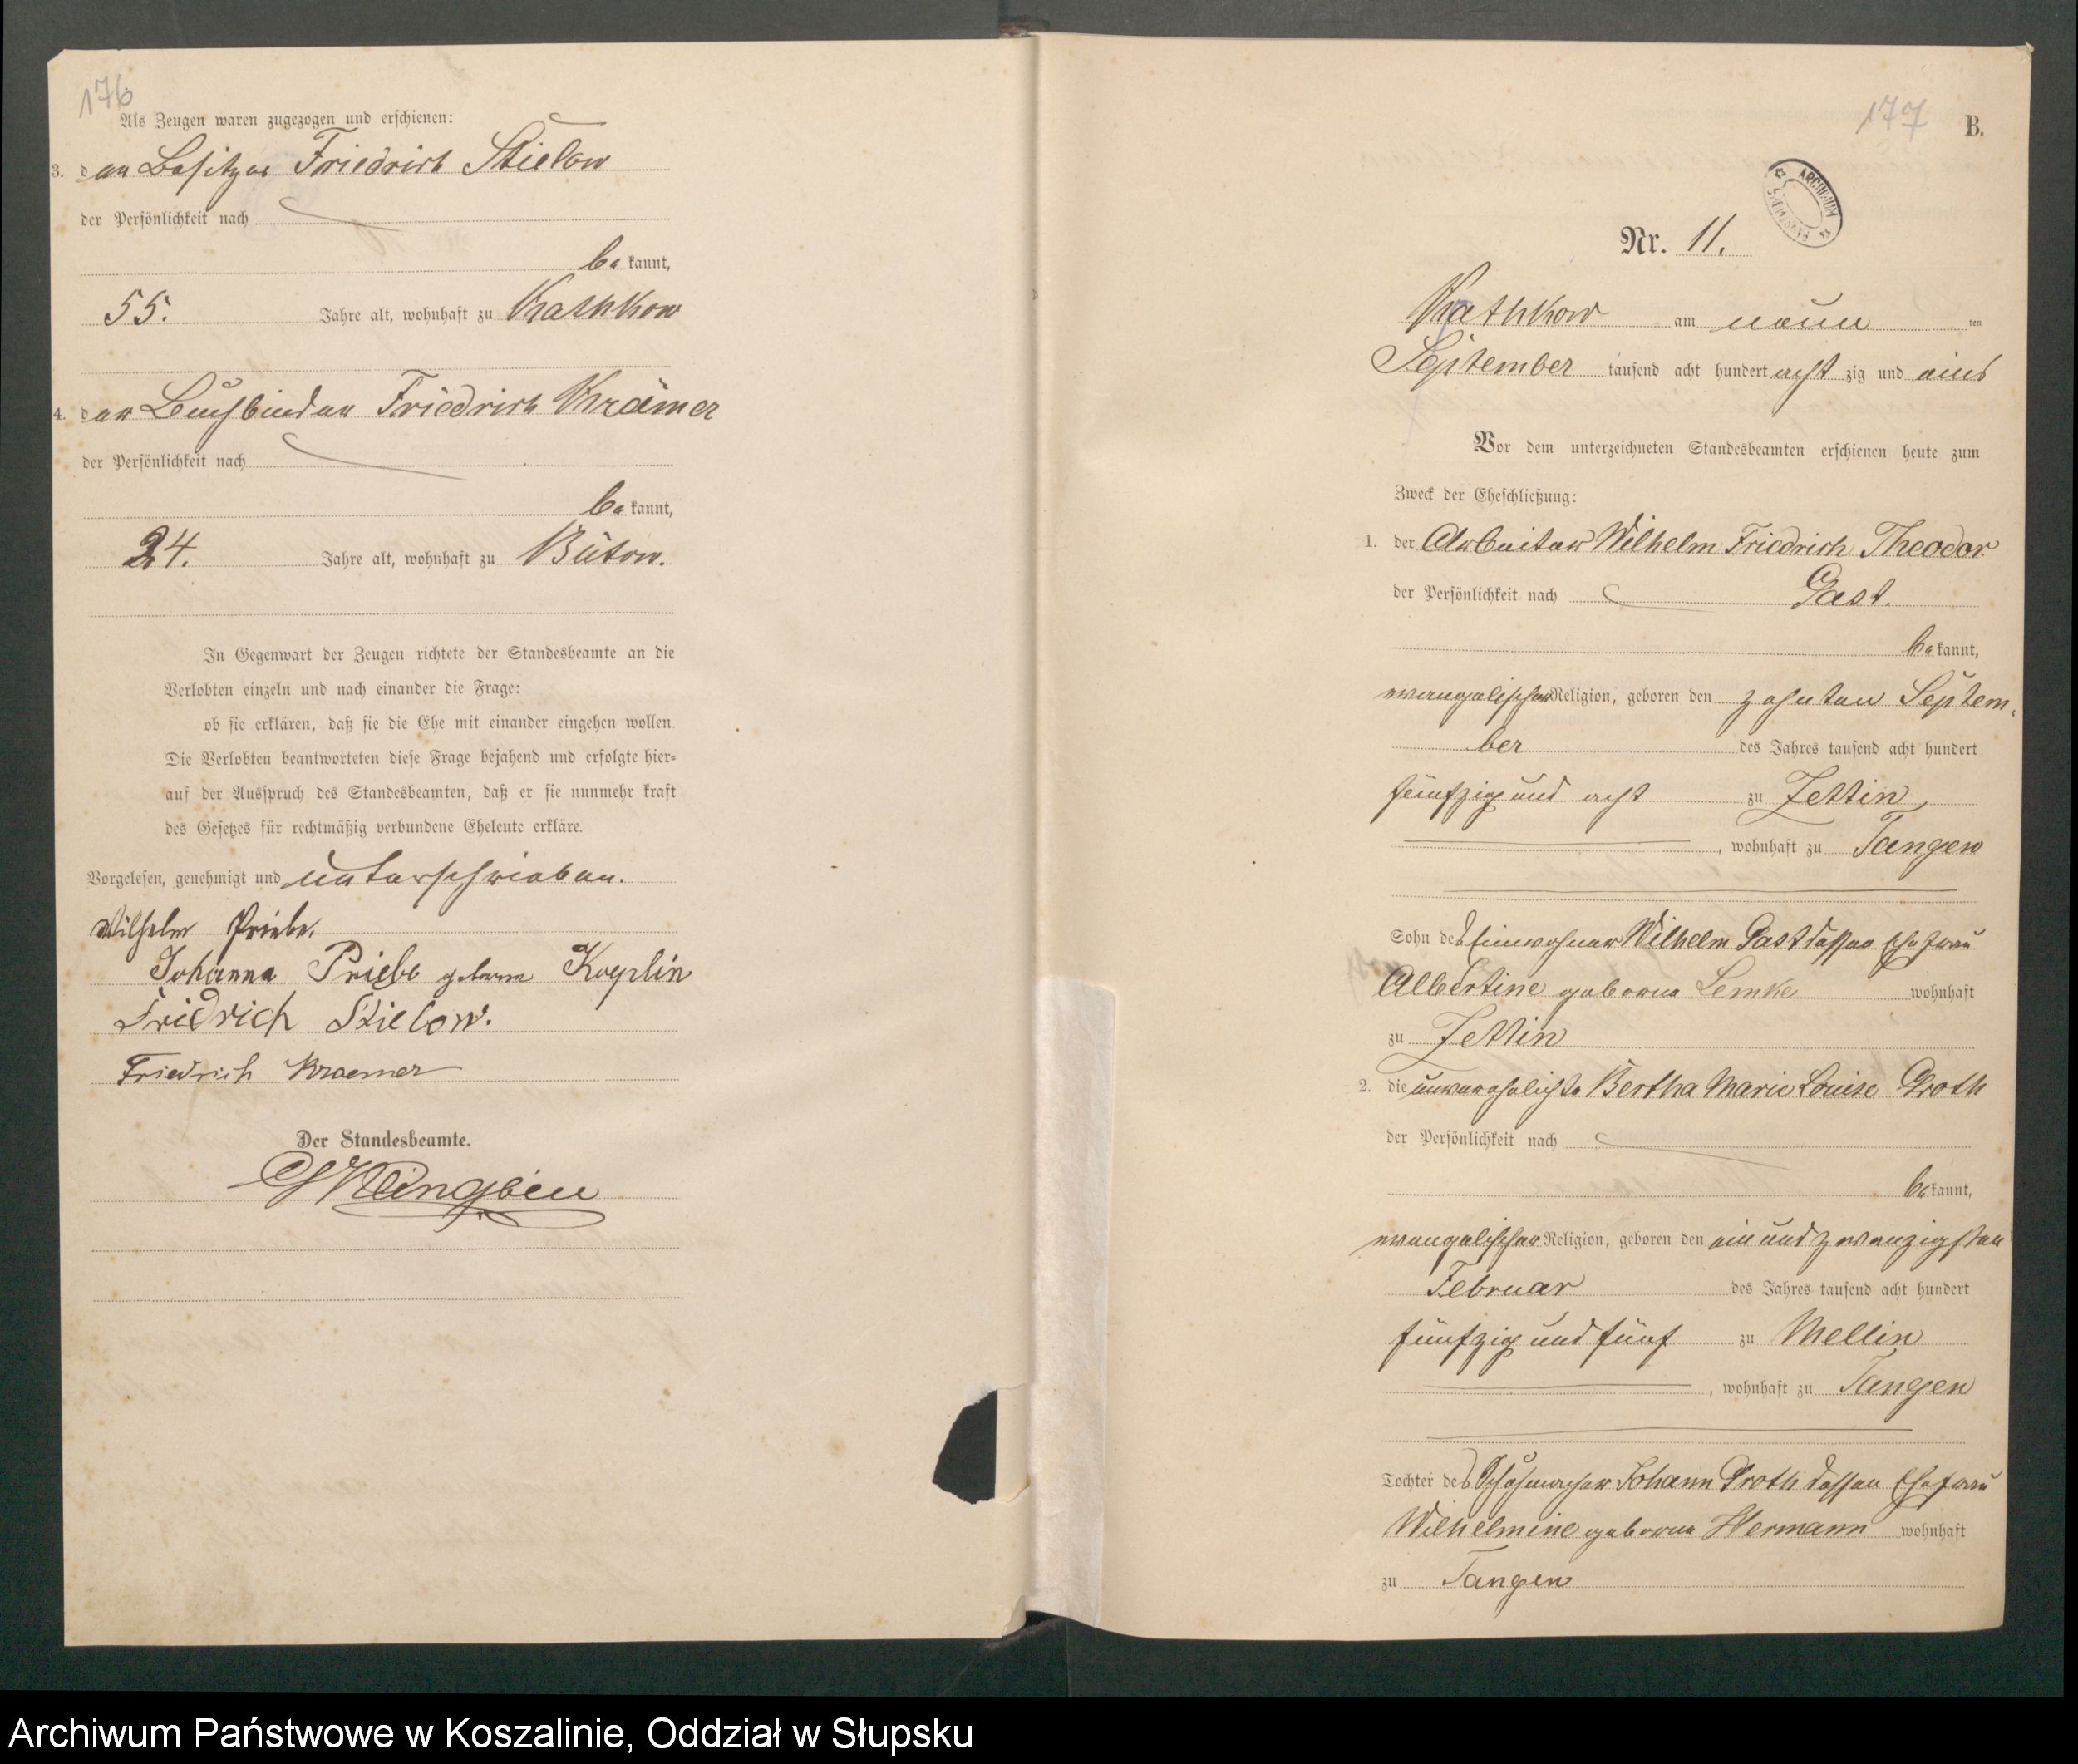 176
Als Zeugen waren zugezogen und erschienen:
3. der Besitzer Friedrich Stielow
der Persönlichkeit nach
be kannt,
55. Jahre alt, wohnhaft zu Kathkow
4. der Buchbinder Friedrich Krämer
der Persönlichkeit nach
be kannt,
24. Jahre alt, wohnhaft zu Bütow.
In Gegenwart der Zeugen richtete der Standesbeamte an die
Verlobten einzeln und nach einander die Frage:
ob sie erklären, daß sie die Ehe mit einander eingehen wollen.
Die Verlobten beantworteten diese Frage bejahend und erfolgte hier-
auf der Ausspruch des Standesbeamten, daß er sie nunmehr kraft
des Gesetzes für rechtmäßig verbundene Eheleute erkläre.
Vorgelesen, genehmigt und unterschrieben.
Wilhelm Priebe.
Johanna Priebe geborne Koeplin
Fridrich Stielow.
Friedrich Kraemer
Der Standesbeamte.
177
B.
ARCHIWUM
Nr. 11.
Kathkow am neun ten
September tausend acht hundert acht zig und eins
Vor dem unterzeichneten Standesbeamten erschienen heute zum
Zweck der Eheschließung:
1. der Arbeiter Wilhelm Friedrich Theodor
der Persönlichkeit nach Gast.
be kannt,
evangelischer Religion, geboren den zehnten Septem-
ber des Jahres tausend acht hundert
fünfzig und acht zu Zettin,
, wohnhaft zu Tangen
Sohn des Einwohner Wilhelm Gast dessen Ehefrau
Albertine geborne Lemke wohnhaft
zu Zettin
2. die unverehelichte Bertha Marie Louise Groth
der Persönlichkeit nach
be kannt,
evangelischer Religion, geboren den ein und zwanzigsten
Februar des Jahres tausend acht hundert
fünfzig und fünf zu Mellin
, wohnhaft zu Tangen
Tochter des Schuhmacher Johann Groth dessen Ehefrau
Wilhelmine geborne Hermann wohnhaft
zu Tangen
Archiwum Państwowe w Koszalinie, Oddział w Słupsku